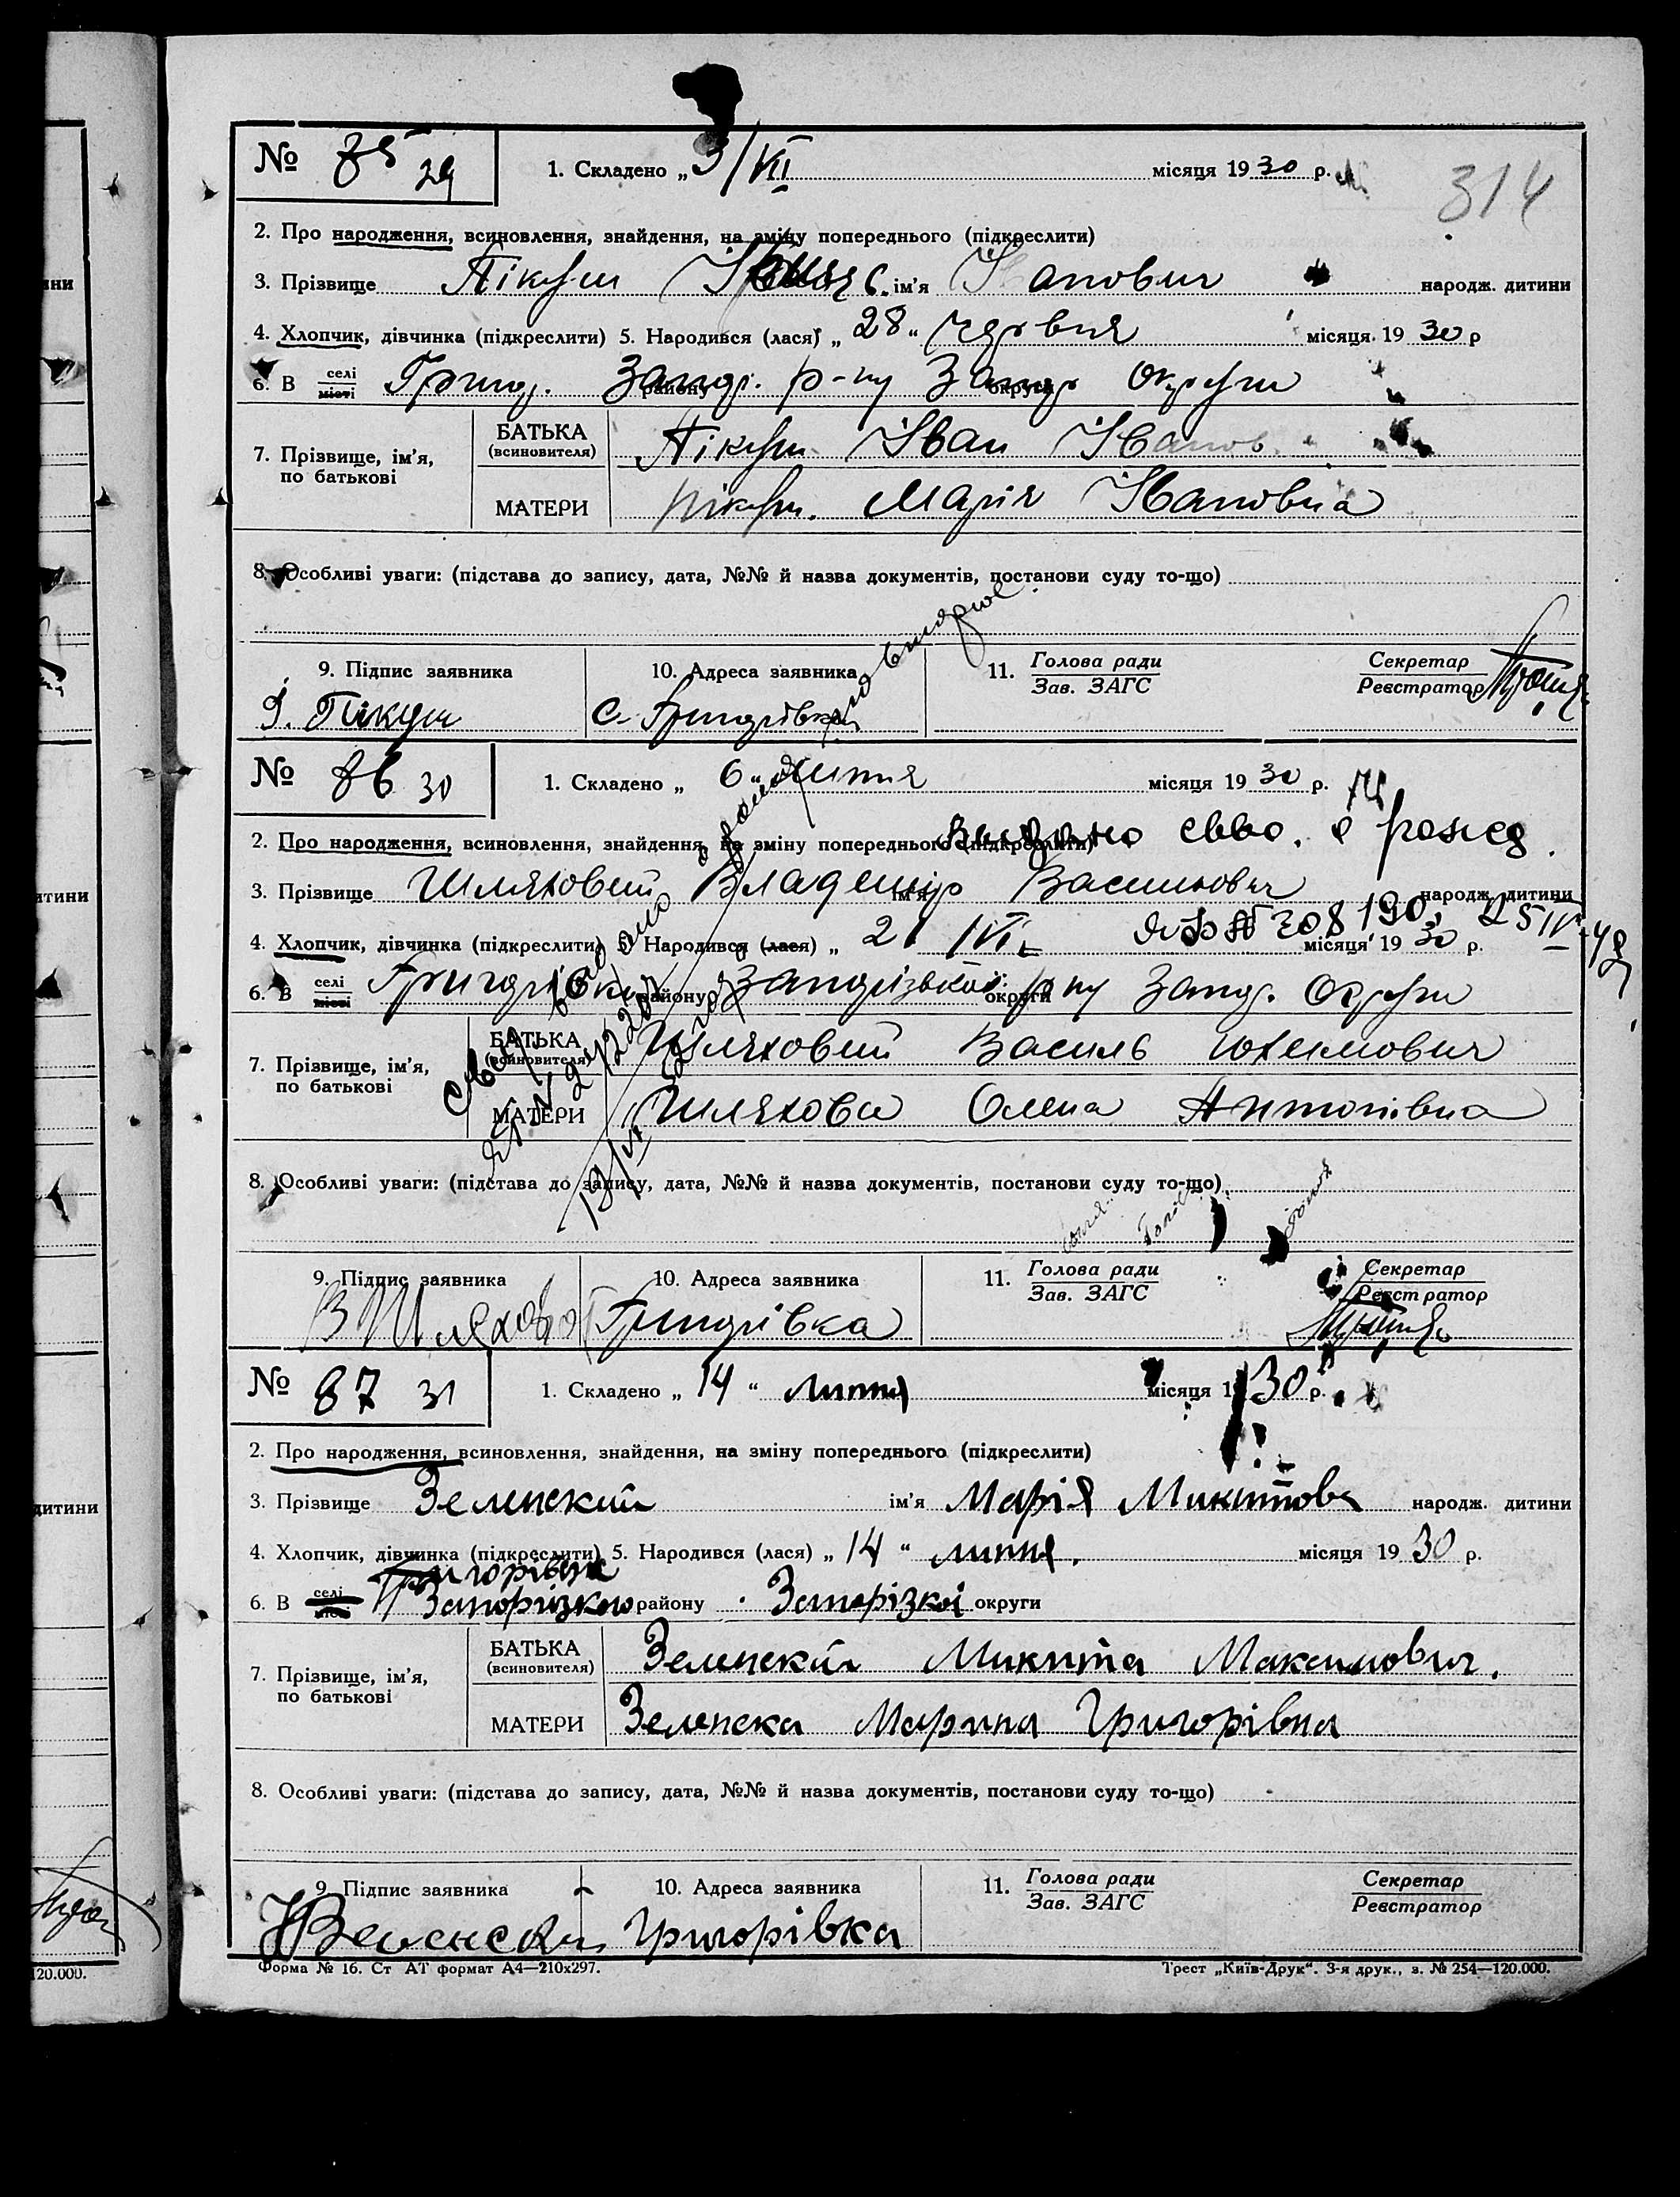 314
№ 85 29
1. Складено „ 3/VII місяця 1930 р.
2. Про народження, всиновлення, знайдення, на зміну попереднього (підкреслити)
3. Прізвище Пікуш ім'я Іванович народж. дитини
4. Хлопчик, дівчинка (підкреслити) 5. Народився (лася) „ 28 “ червня місяця 1930 р
6. В селі місті Григор. Запор. р-ну району Запор округи округи
7. Прізвище, ім'я, по батькові
БАТЬКА (всиновителя) Пікуш Іван Іванов.
МАТЕРИ Пікуш. Марія Івановна
8. Особливі уваги: (підстава до запису, дата, №№ й назва документів, постанови суду то-що)
9. Підпис заявника 10. Адреса заявника 11. Голова ради Зав. ЗАГС Секретар Реєстратор
І. Пікуш с. Григорівка
№ 86 30
1. Складено „ 6 “ липня місяця 1930 р.
2. Про народження, всиновлення, знайдення, на зміну попереднього (підкреслити)
Видано
3. Прізвище Шляховий ім'я Владемір Васильович народж. дитини
4. Хлопчик, дівчинка (підкреслити) 5. Народився (лася) „ 2 місяця 1930 р.
6. В селі місті Григорівки району Запорізької р-ну округи Запор. Округи
7. Прізвище, ім'я, по батькові
БАТЬКА (всиновителя) Шляховий Василь Юхимович
МАТЕРИ Шляхова Олена Антонівна
8. Особливі уваги: (підстава до запису, дата, №№ й назва документів, постанови суду то-що)
9. Підпис заявника 10. Адреса заявника 11. Голова ради Зав. ЗАГС Секретар Реєстратор
В Шляхово Григорівка
№ 87 31
1. Складено „ 14 “ липня місяця 1930 р.
2. Про народження, всиновлення, знайдення, на зміну попереднього (підкреслити)
3. Прізвище Зеленский ім'я Марія Микитова народж. дитини
4. Хлопчик, дівчинка (підкреслити) 5. Народився (лася) „ 14 “ липня. місяця 1930 р.
Григорівка
6. В селі місті Запорізкого району Запорізкої округи
7. Прізвище, ім'я, по батькові
БАТЬКА (всиновителя) Зеленский Микита Максимович.
МАТЕРИ Зеленска Марина Григорівна
8. Особливі уваги: (підстава до запису, дата, №№ й назва документів, постанови суду то-що)
9. Підпис заявника 10. Адреса заявника 11. Голова ради Зав. ЗАГС Секретар Реєстратор
Григорівка
Форма № 16. Ст АТ формат А4—210х297. Трест „Київ-Друк“. 3-я друк., з. № 254—120.000.